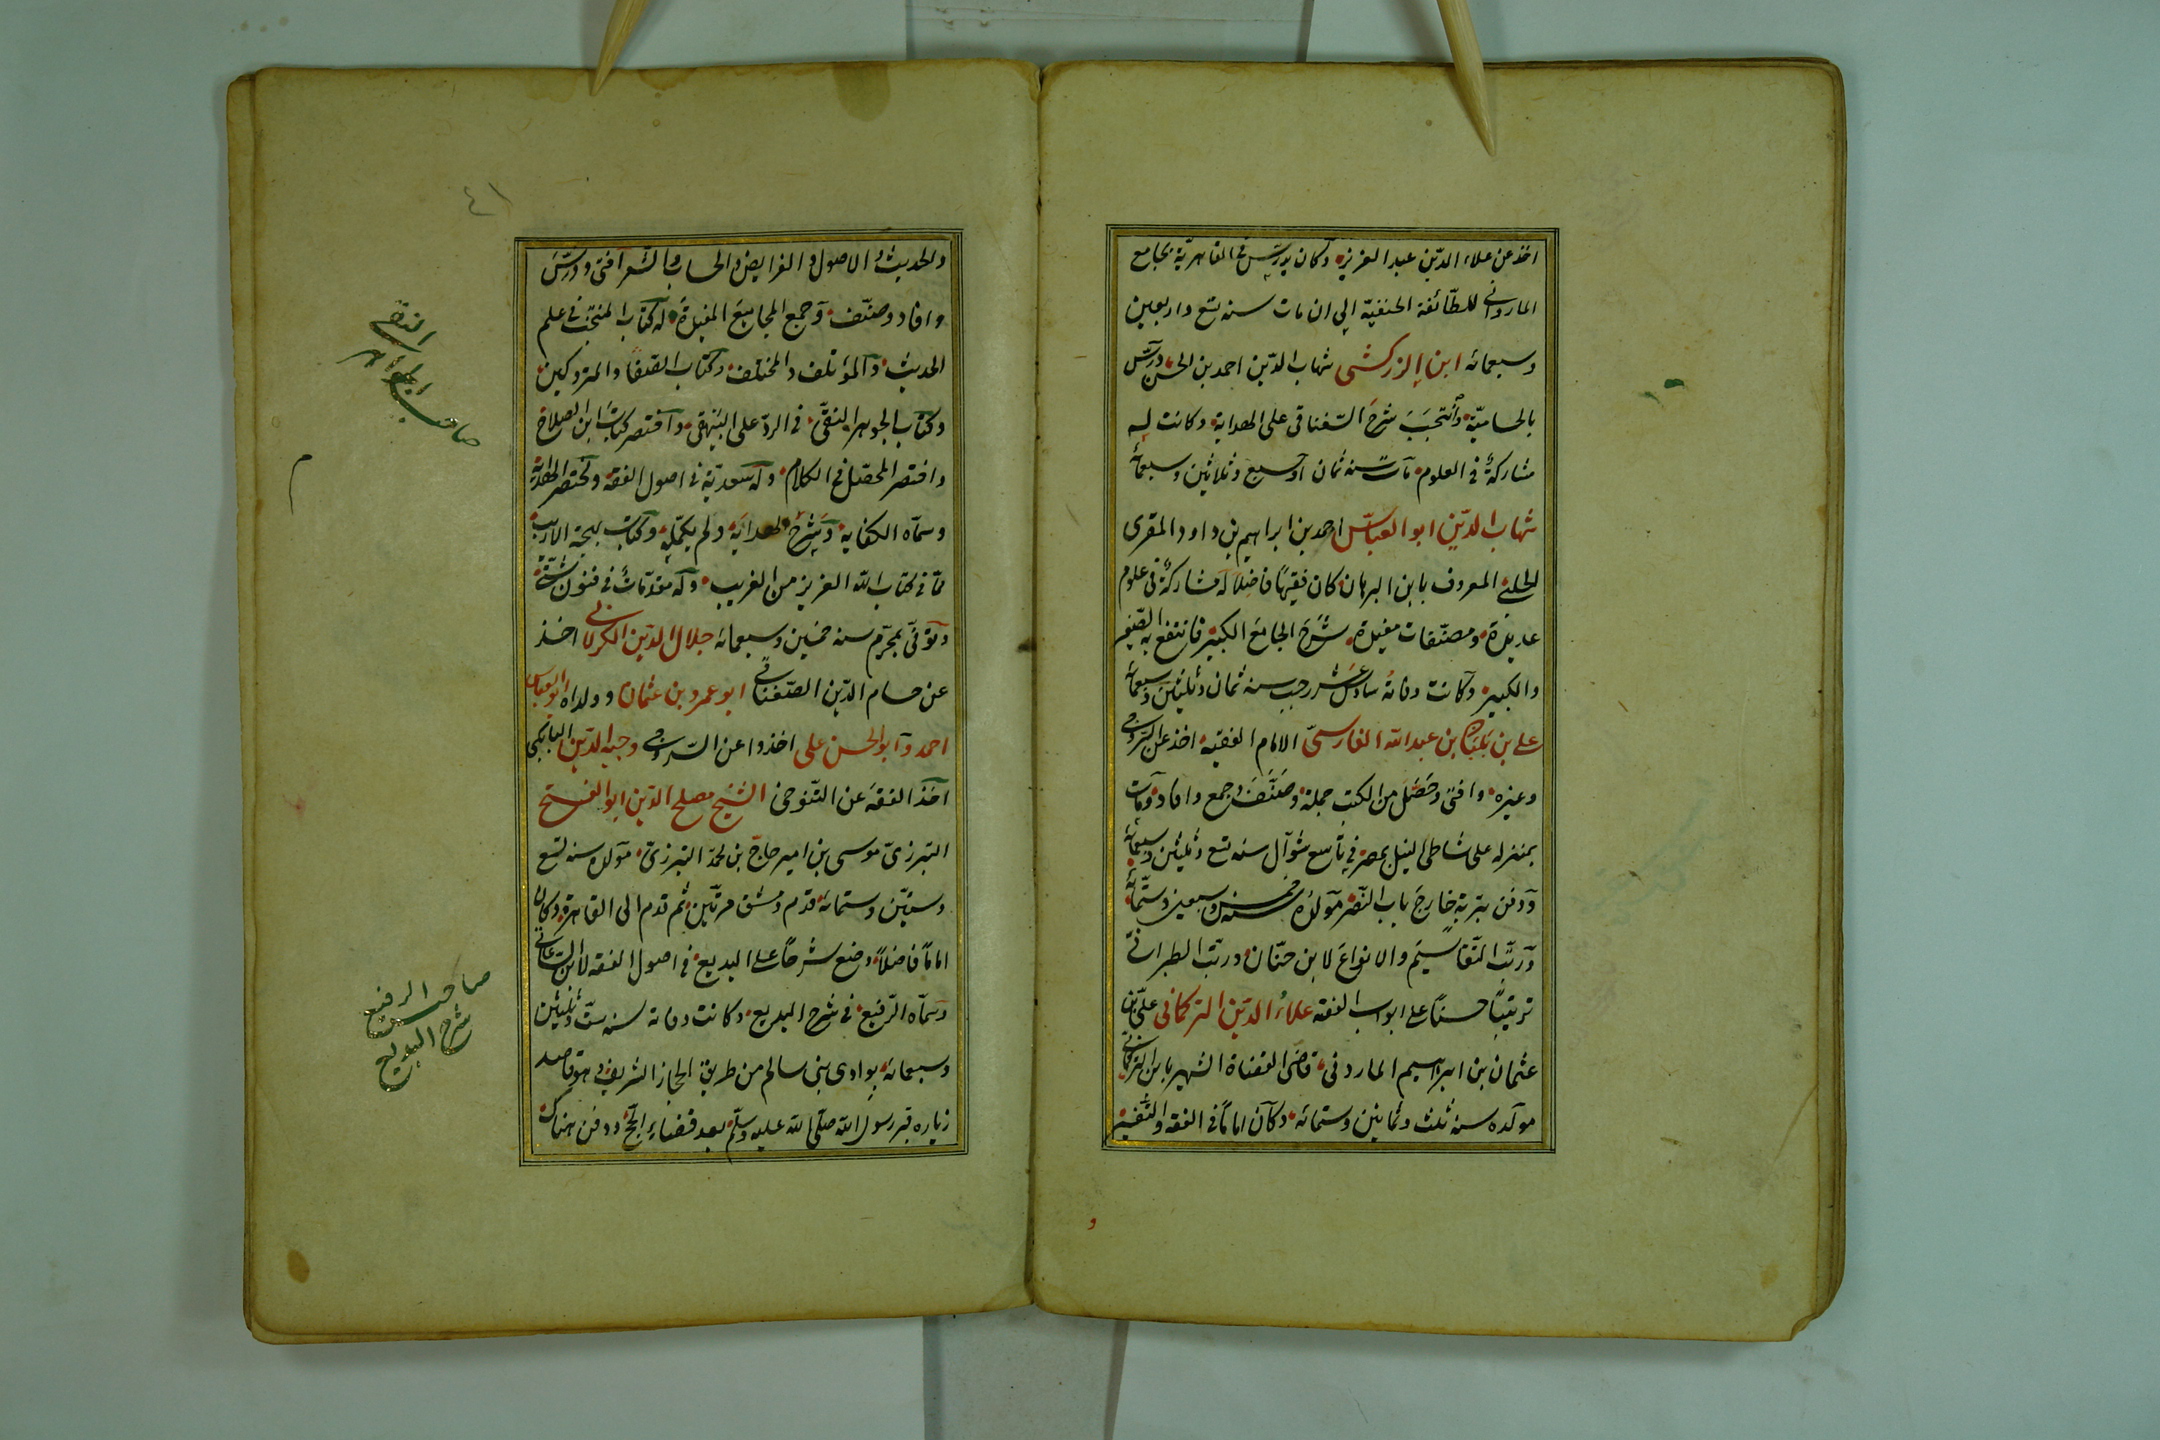 اخذ عن علاء الدين عبد العزيز وكان يدرس في القاهرية بجامع
المارداني للطائفة الحنفية الى ان مات سنة تسع واربعين
وسبعمائه ابن الزركشي شهاب الدين احمد بن الحسن درّس
بالحسامية وانتخب شرح السغناقى على الهداية وكانت له
مشاركة في العلوم مات سنة ثمان او سبع وثلاثين وسبعمائة
شهاب الدين ابو العباس احمد بن ابراهيم بن داود المقرى
الحلبي المعروف بابن البرهان كان فقيها فاضلا له مشاركة في علوم
عديدة ومصنفات مفيدة شرح الجامع الكبير فانتفع به الصغير
والكبير وكانت وفاته سادس عشر رجب سنة ثمان وثلثين وسبعمائة
على بن بلبان بن عبد الله الفارسي الامام الفقيه اخذ عن السروجي
وغيره وافتى وحصّل من الكتب جملة وصنّف وجمع وافاد ومات
بمنزله على شاطئ النيل بمصر في تاسع شوال سنة تسع وثلثين وسبعمائة
ودفن بتربة خارج باب النصر مولده خمس سنة وسبعين وستمائة
ورتّب التقاسيم والانواع لابن حبّان ورتّب الطبرانى
ترتيبا حسنا على ابواب الفقه علاء الدين التركمانى على بن
عثمان بن ابراهيم الماردنى قاضى القضاة الشهير بابن التركمانى
مولده سنة ثلث وثمانين وستمائه وكان اماما في الفقه والتفسير
و
٤١
والحديث والاصول والفرايض والحساب والشعر افتى ودرّس
وافاد وصنّف وجمع المجاميع المفيدة له كتاب المنتخب في علم
الحديث والمؤتلف والمختلف وكتاب الضعفا والمتروكين
وكتاب الجوهر النقى في الرد على البيهقى واختصر كتاب ابن الصلاح
واختصر المحصّل في الكلام وله سعدية في اصول الفقه ومختصر الهداية
وسماه الكفاية وشرح الهداية ولم يكمله وكتاب بهجة الاريب
مما في كتاب الله العزيز من الغريب وله مقدمات في فنون شتى
وتوفى بمحرم سنة خمسين وسبعمائه جلال الدين الكرلانى اخذ
عن حسام الدين الصغناقى ابو عمرو بن عثمان وولداه ابو العباس
احمد وابو الحسن على اخذوا عن السروجى وجيه الدين
اخذ الفقه عن التنوخى الشيخ مصلح الدين ابو الفتح
التبرزى موسى بن امير حاج بن محمد التبرزى مولده سنة تسع
وستين وستمائة قدم دمشق مرتين ثم قدم الى القاهرة وكان
اماما فاضلا وضع شرحا على البديع في اصول الفقه لابن الساعاتى
وسماه الرفيع في شرح البديع وكانت وفاته سنة ست وثلثين
وسبعمائة بوادى بنى سالم من طريق الحجاز الشريف وهو قاصد
زياره قبر رسول الله صلى الله عليه وسلم بعد قضاء الحج ودفن هناك
صاحب الجواهر النقى
م
صاحب الرفيع
شرح البديع